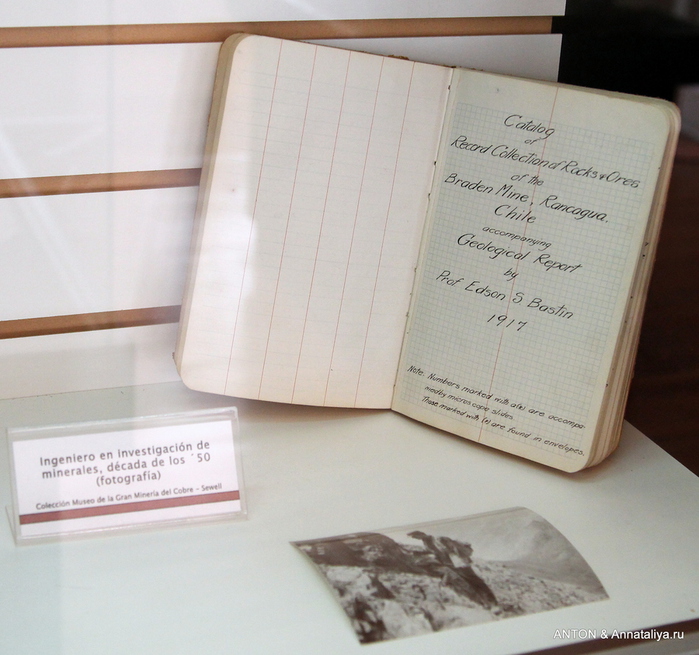 Catalog
of
Record Collection of Rocks & Ores
of the
Braden Mine, Rancagua.
Chile
accompanying
Geological Report
by
Prof Edson S. Bastin
1917
Note: Numbers marked with are accompa-
nied by microscope slides.
Those marked with are found in envelopes.
Ingeniero en investigación de
minerales, década de los ´50
(fotografía)
Colección Museo de la Gran Minería del Cobre - Sewell
ANTON & Annataliya.ru